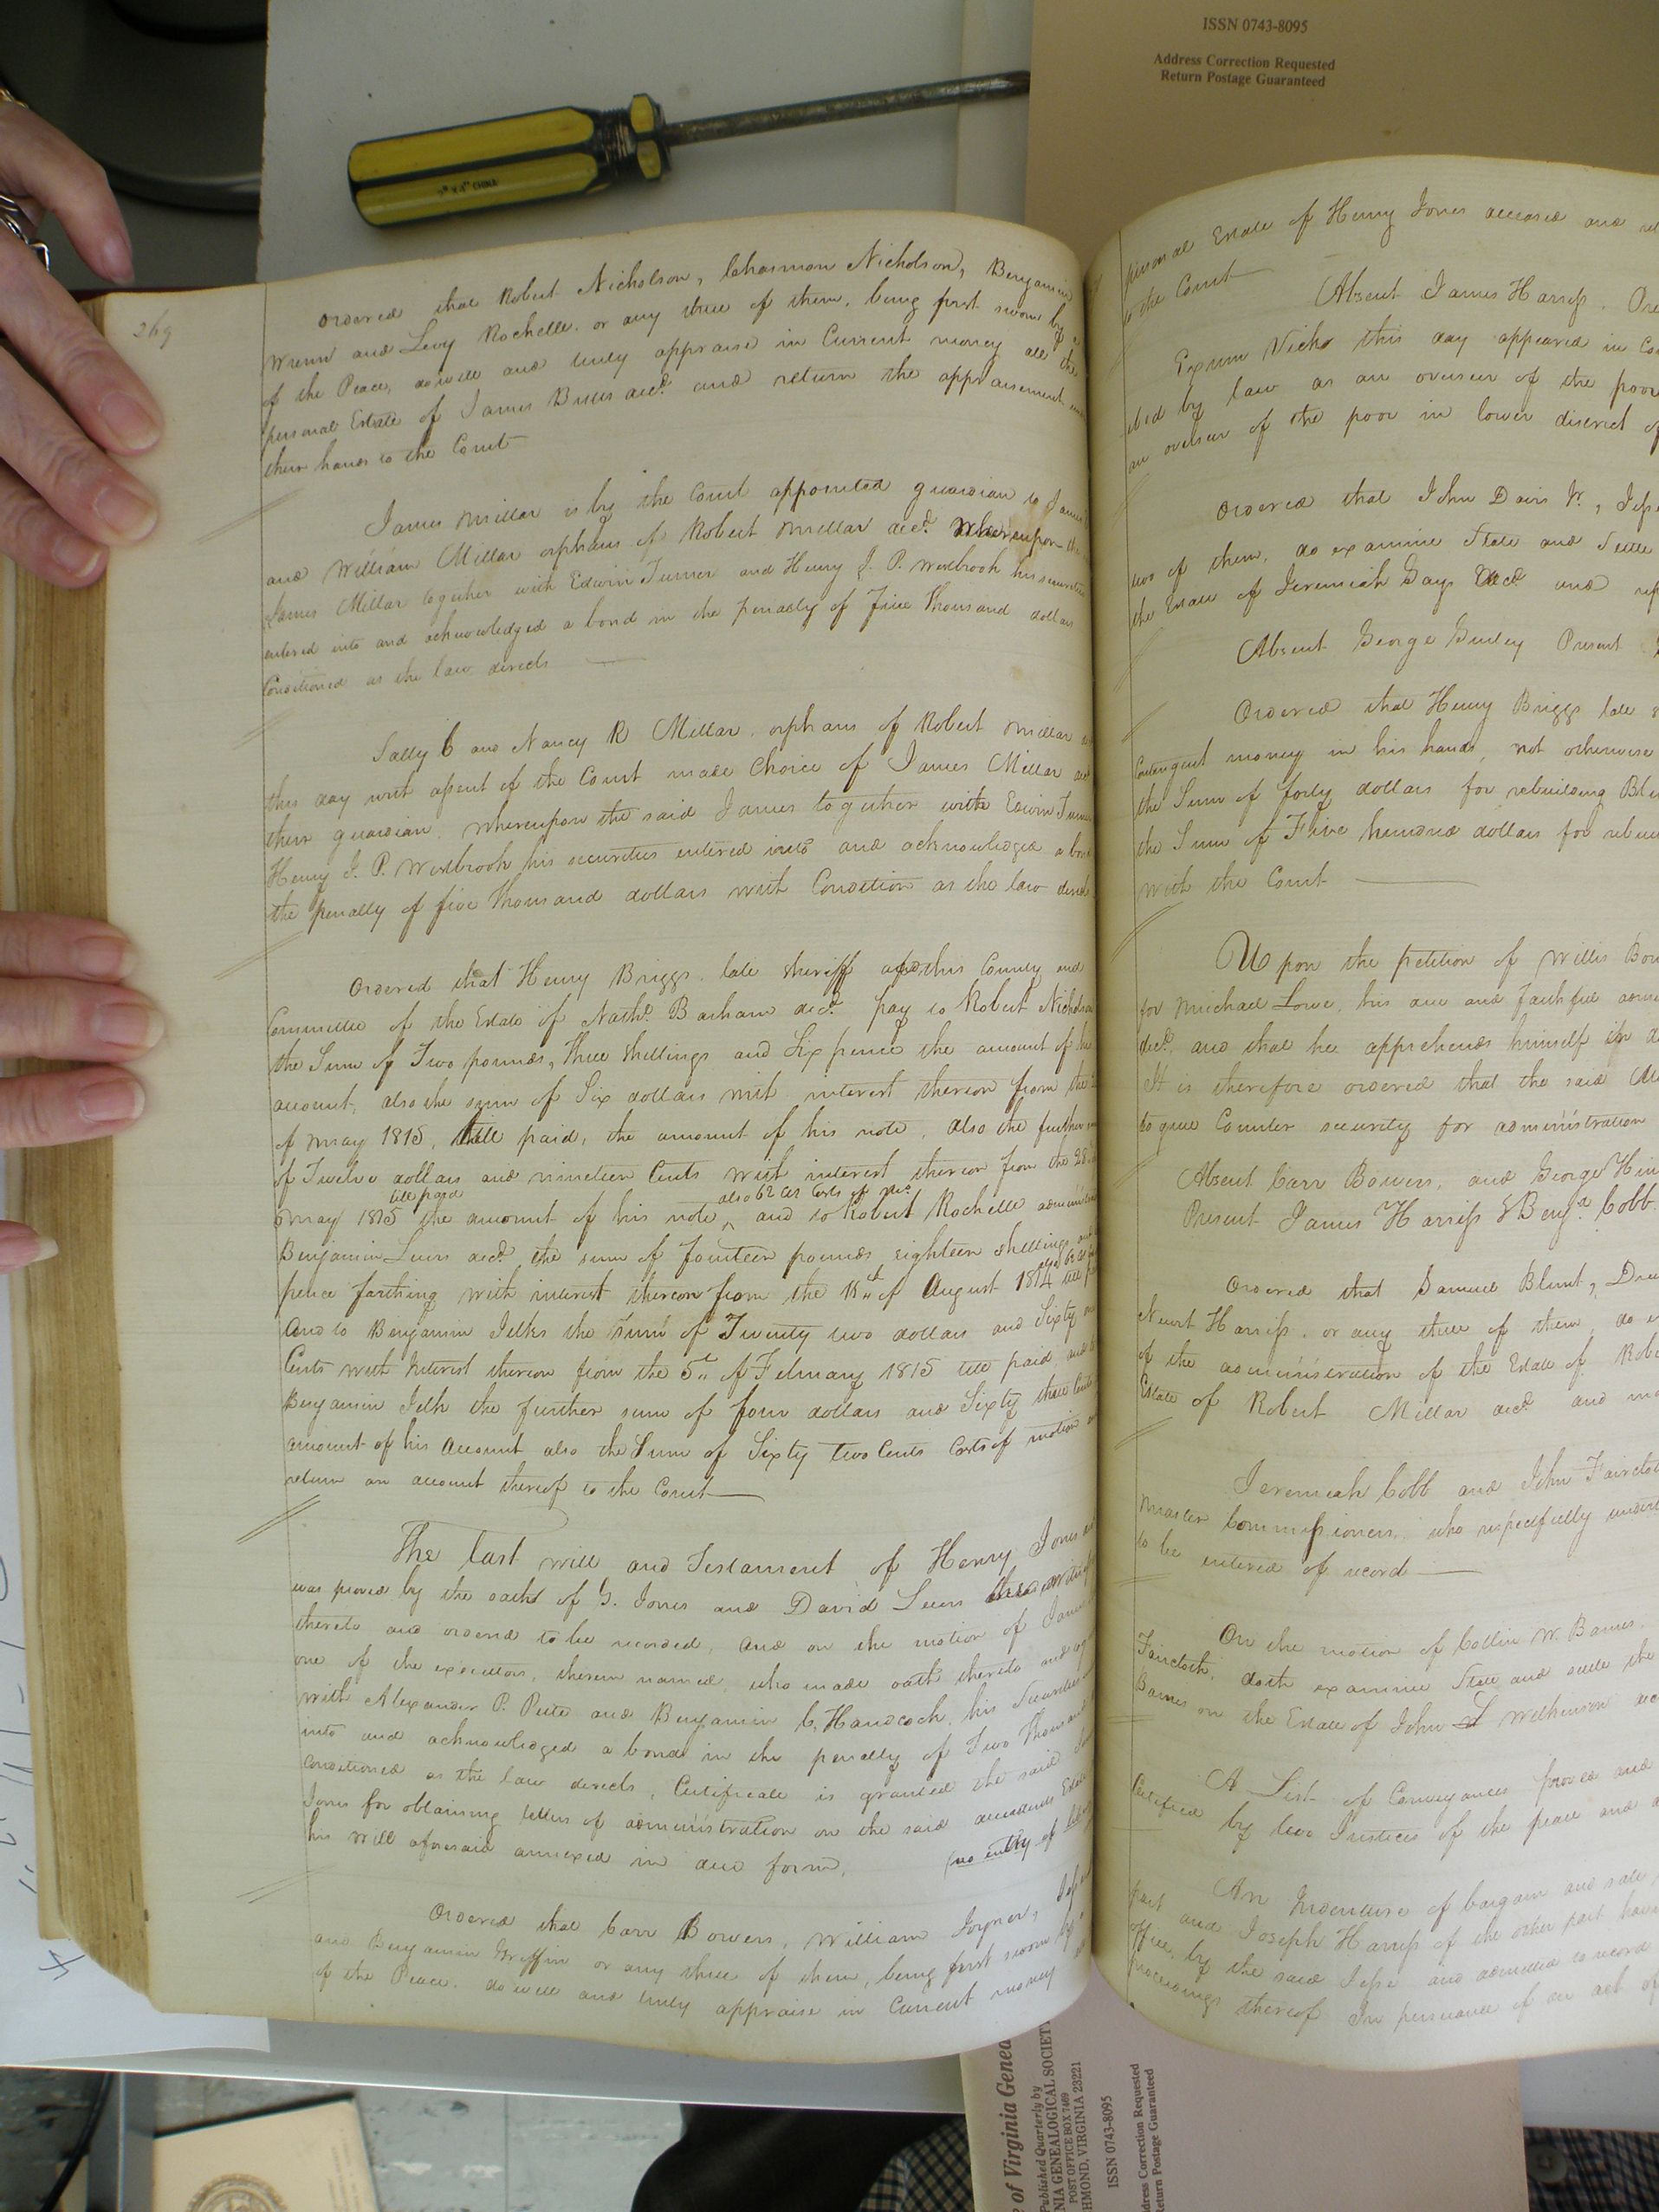 ISSN 0743-8095
Address Correction Requested
Return Postage Guaranteed
CHINA
269
Ordered that Robert Nicholson, Charsmon Nicholson, Benjamin
Wrenn and Levy Rochelle. or any three of them, being first sworn by
of the Peace, do well and truly appraise in Current money all the
personal Estate of James decd. and return the appraisement
their hands to the Court
James Millar is by the Court appointed guardian to James
and William Millar orphans of Robert Millar decd. Whereupon the
James Millar together with Edwin Turner and Henry J. P. Westbrook his securities
entered into and acknowledged a bond in the penalty of five Thousand dollars
Conditioned as the law directs
Sally C and Nancy R Millar. orphans of Robert Millar
this day with assent of the Court made Choice of James Millar
their guardian. whereupon the said James together with Edwin Turner
Henry J. P. Westbrook his securities entered into and acknowledged a bond
the penalty of five Thousand dollars with Condition as the law directs
Ordered that Henry Briggs. late Sheriff of this County and
Committee of the Estate of Nathl. Barham decd. pay to Robert Nicholson
the Sum of Two pounds, Three Shillings and Six pence the amount of his
account, also the sum of Six dollars with interest thereon from the
of May 1815, till paid, the amount of his note, also the further
of Twelve dollars and nineteen Cents with interest thereon from the 28
May 1815 till paid the amount of his note, also 62 cts Costs of and to Robert Rochelle
Benjamin decd. the sum of fourteen pounds eighteen shillings
pence farthing with interest thereon from the of August 1814 till
And to Benjamin Jelks the sum of Twenty two dollars and Sixty
Cents with Interest thereon from the 5th of February 1815 till paid, and
Benjamin Jelks the further sum of four dollars and Sixty three Cents
amount of his Account also the Sum of Sixty Two Cents Costs of motion
return an account thereof to the Court
The last will and Testament of Henry Jones
was proved by the oaths of G. Jones and David
thereto and ordered to be recorded, And on the motion of
one of the executors, therein named, who made oath thereto and
with Alexander P. Peete and Benjamin C. Handcock, his Securities
into and acknowledged a bond in the penalty of Two Thousand
Conditioned as the law directs, Certificate is granted the said
Jones for obtaining letters of administration on the said decedents Estate
his will aforesaid annexed in due form.
(no entry of
Ordered that Carr Bowers, William Joyner,
and Benjamin Griffin or any three of them, being first sworn by
of the Peace. do well and truly appraise in Current money
personal Estate of Henry Jones deceased and
to the Court
Absent James Harriss.
Exum Vicks this day appeared in
by law as an overseer of the poor
an overseer of the poor in lower district of
Ordered that John Davis
two of them, do examine State and Settle
the Estate of Jeremiah Gays decd. and
Absent George Gurley Present
Ordered that Henry Briggs late
Contingent money in his hands, not otherwise
the Sum of forty dollars for rebuilding
the Sum of Five hundred dollars for
with the Court
Upon the petition of Willis
for Michael Lowe, his due and faithful
decd. and that he apprehends himself in
It is therefore ordered that the said
to give Counter security for administration
Absent Carr Bowers, and George
Present James Harriss & Benjn. Cobb.
Ordered that Samuel Blunt,
Newit Harriss. or any three of them, do
of the administration of the Estate of
Estate of Robert Millar decd. and
Jeremiah Cobb and John
Master Commissioners. who respectfully
to be entered of record
On the motion of Collin W. Barnes.
doth examine State and settle the
Barnes on the Estate of John Wilkinson
A List of Conveyances proved and
Certified by two Justices of the peace and
An Indenture of bargain and sale
part and Joseph Harriss of the other part
office, by the said Jesse and admitted to record
proceedings thereof In pursuance of an act of
of Virginia
Published Quarterly by
GENEALOGICAL SOCIETY
POST OFFICE BOX 7469
RICHMOND, VIRGINIA 23221
ISSN 0743-8095
Address Correction Requested
Return Postage Guaranteed